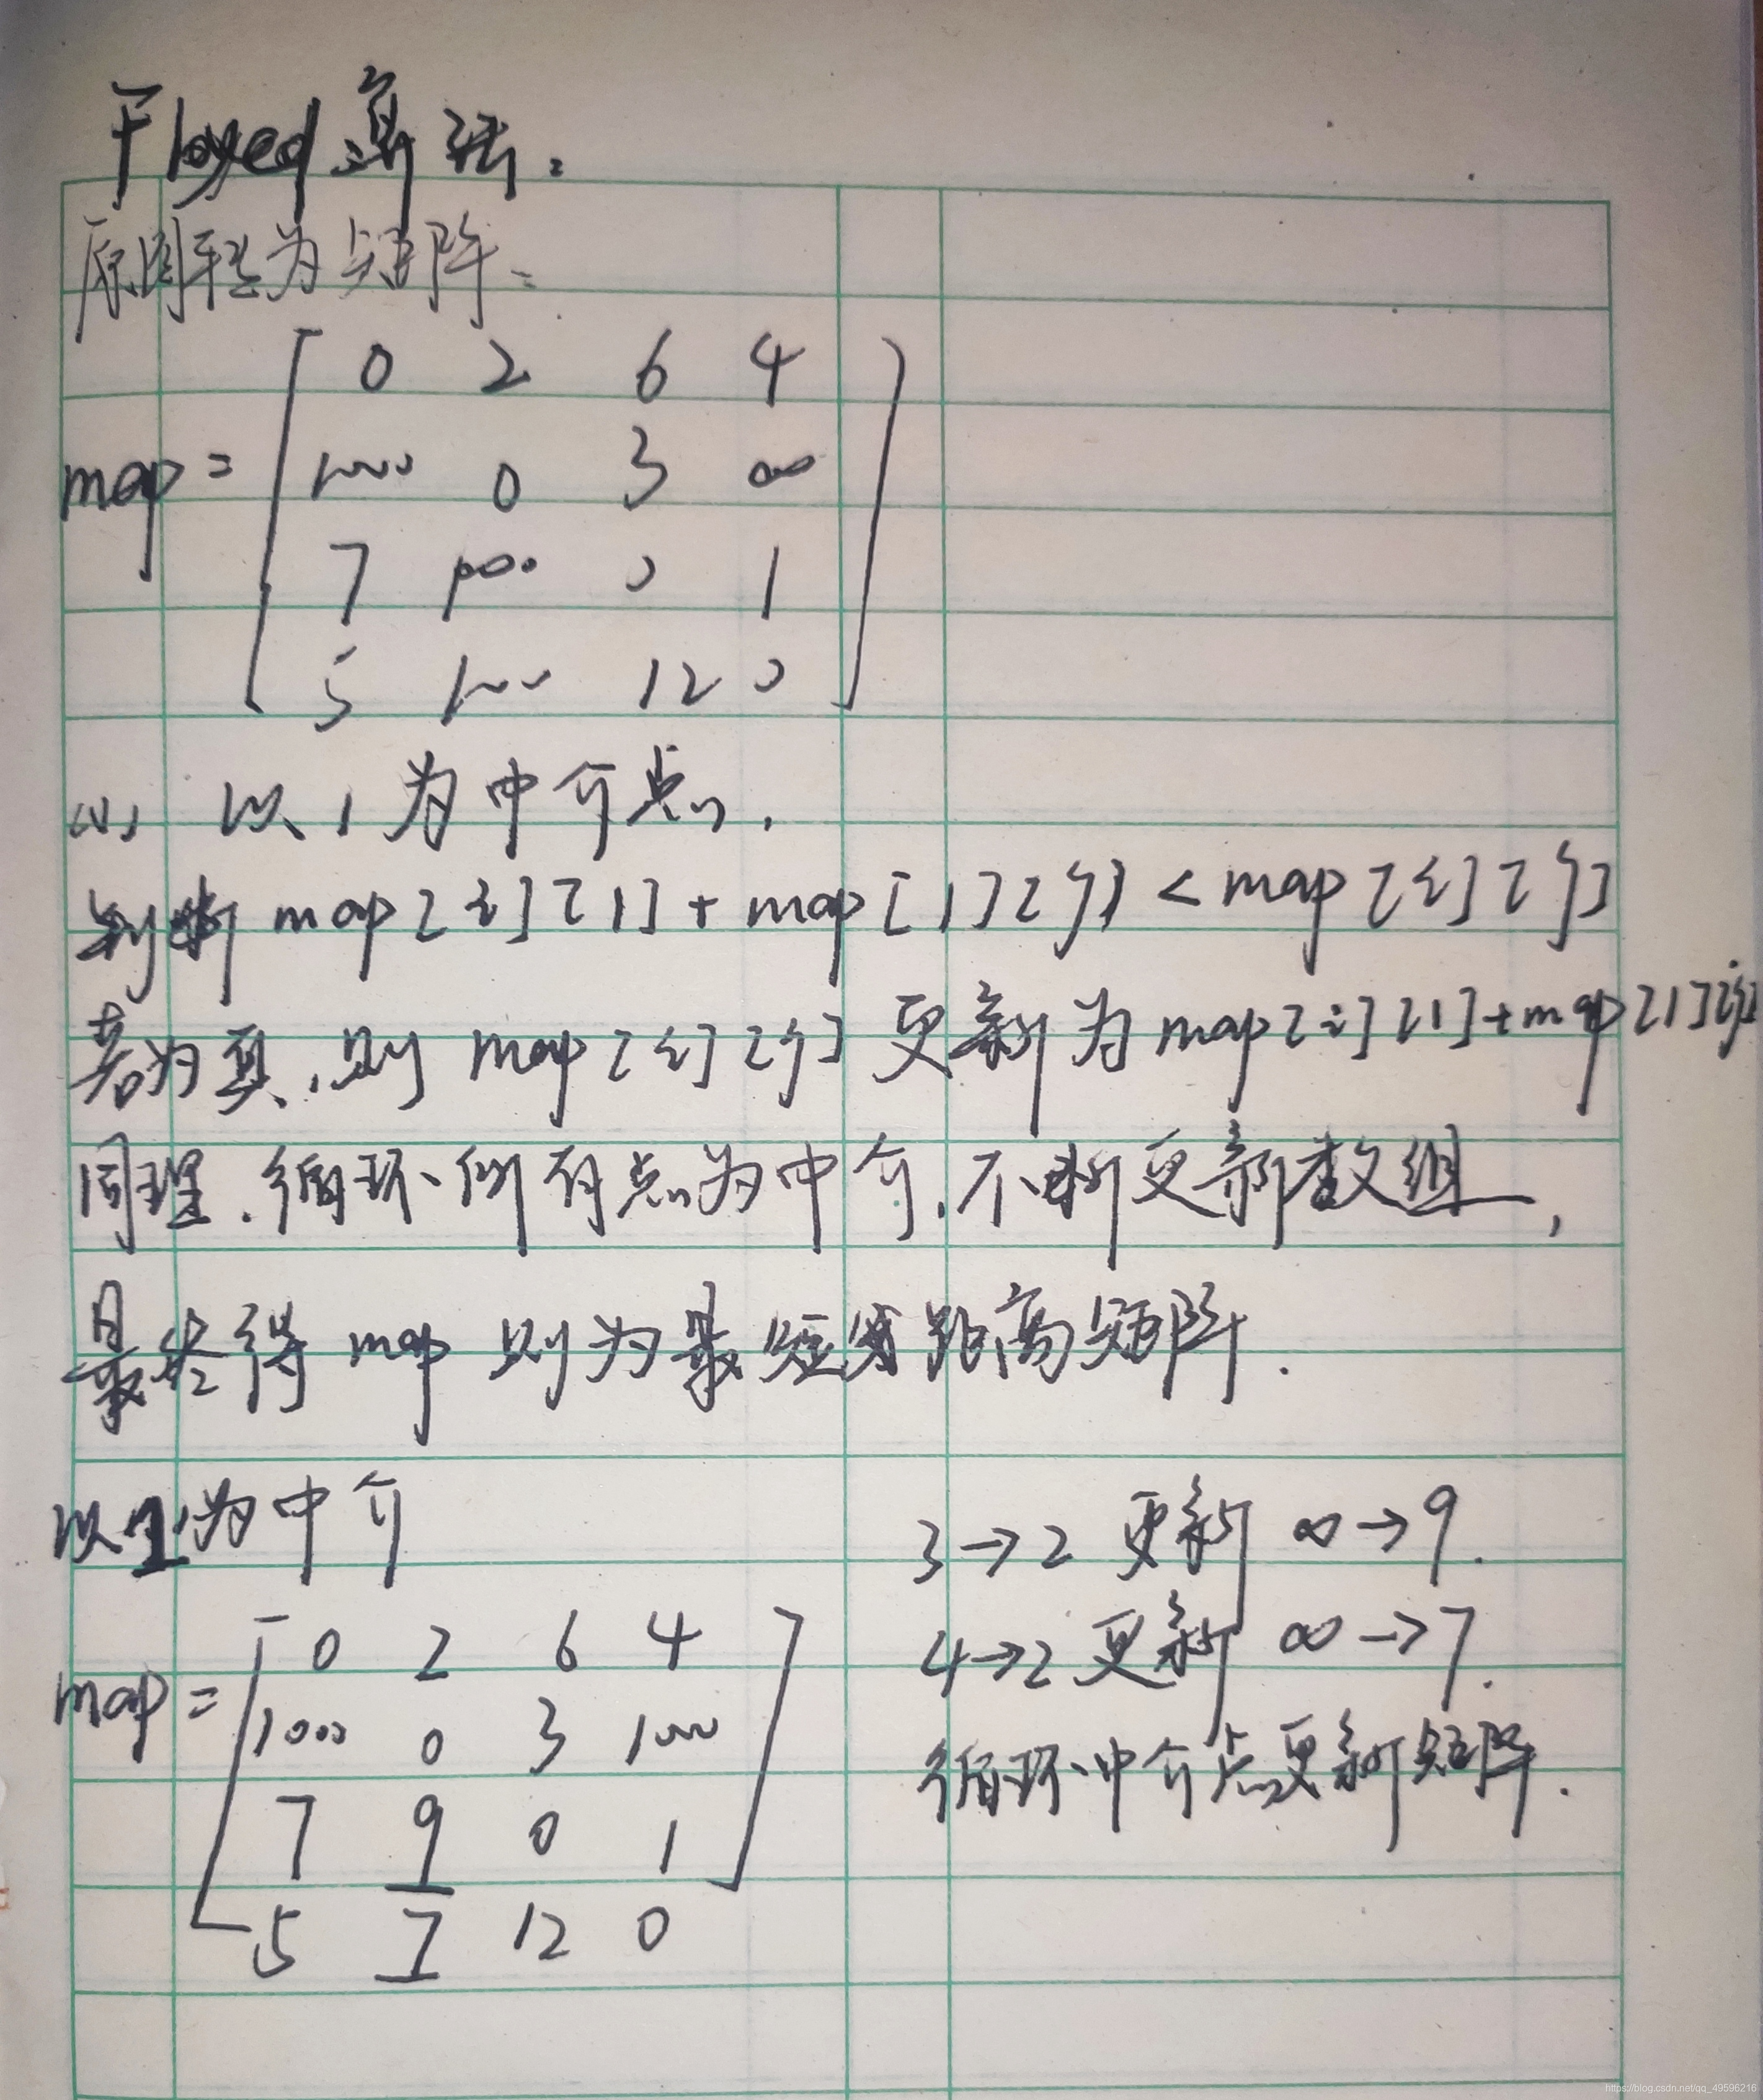 Floyed算法:
原图转为矩阵:
map = [ 0 2 6 4
1000 0 3 ∞
7 1000 0 1
5 1000 12 0 ]
(1) 以1为中介点,
判断 map[i][1] + map[1][j] < map[i][j]
若为真,则 map[i][j] 更新为 map[i][1]+map[1][j]
同理.循环所有点为中介,不断更新数组,
最终得 map 则为最短距离矩阵.
以1为中介
map = [ 0 2 6 4
1000 0 3 1000
7 9 0 1
5 7 12 0 ]
3→2 更新 ∞→9.
4→2 更新 ∞→7.
循环中介点更新矩阵.
https://blog.csdn.net/qq_49596216